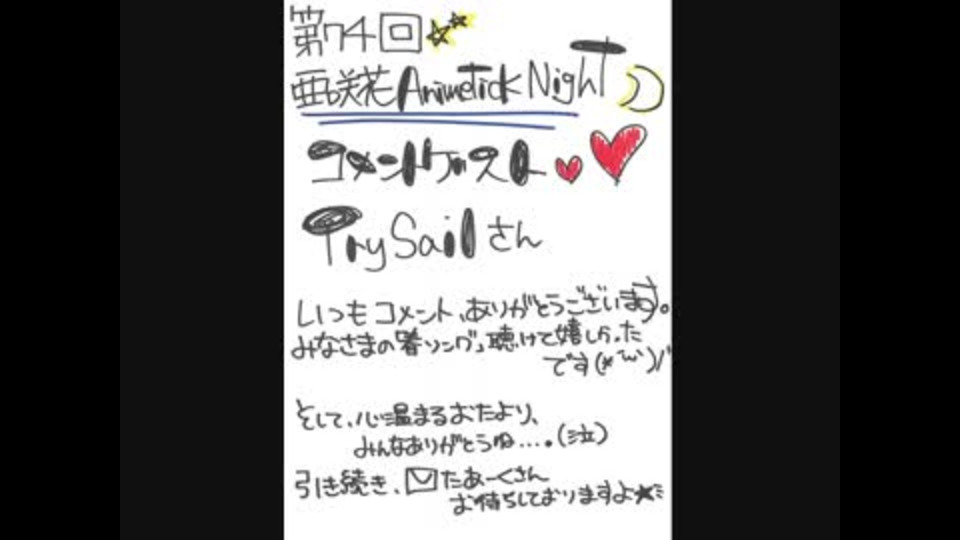 第74回
亜咲花 AnimeTick Night
コメントゲスト
TrySailさん
いつもコメント、ありがとうございます。
みなさまの着ソング、聴けて嬉しかった
です(*´ω`)ﾉ
そして、心温まるおたより、
みんなありがとうね…。(泣)
引き続き、たあーくさん
お待ちしておりますよ★ミ